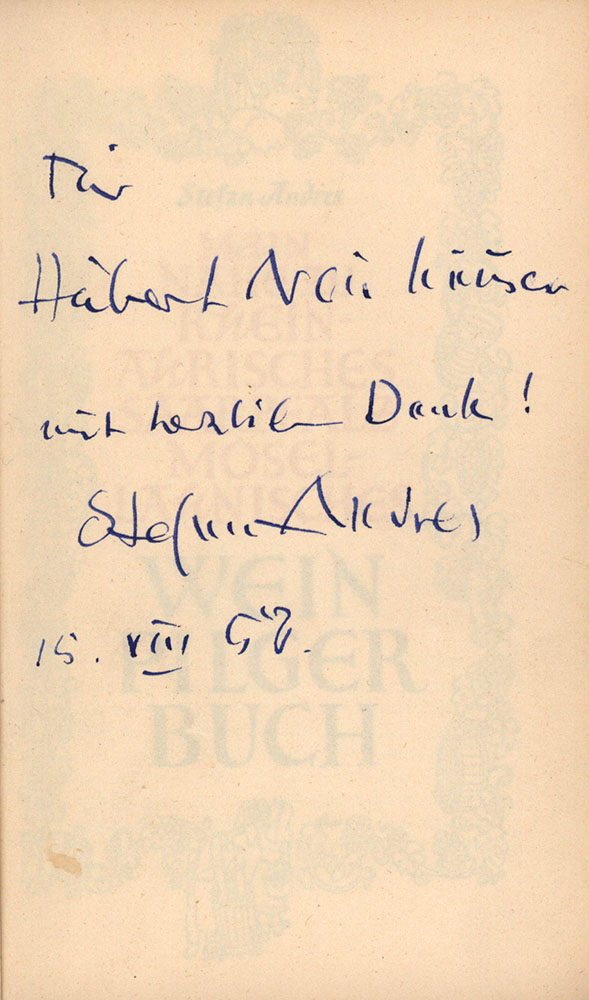 Für
Stefan Andres
Hubert Neu
RHEIN
AHRISCHES
mit herzlichem Dank!
MOSEL-
LAHNISCHES
Stefan Andres
WEIN
15. VIII 58.
PILGER
BUCH